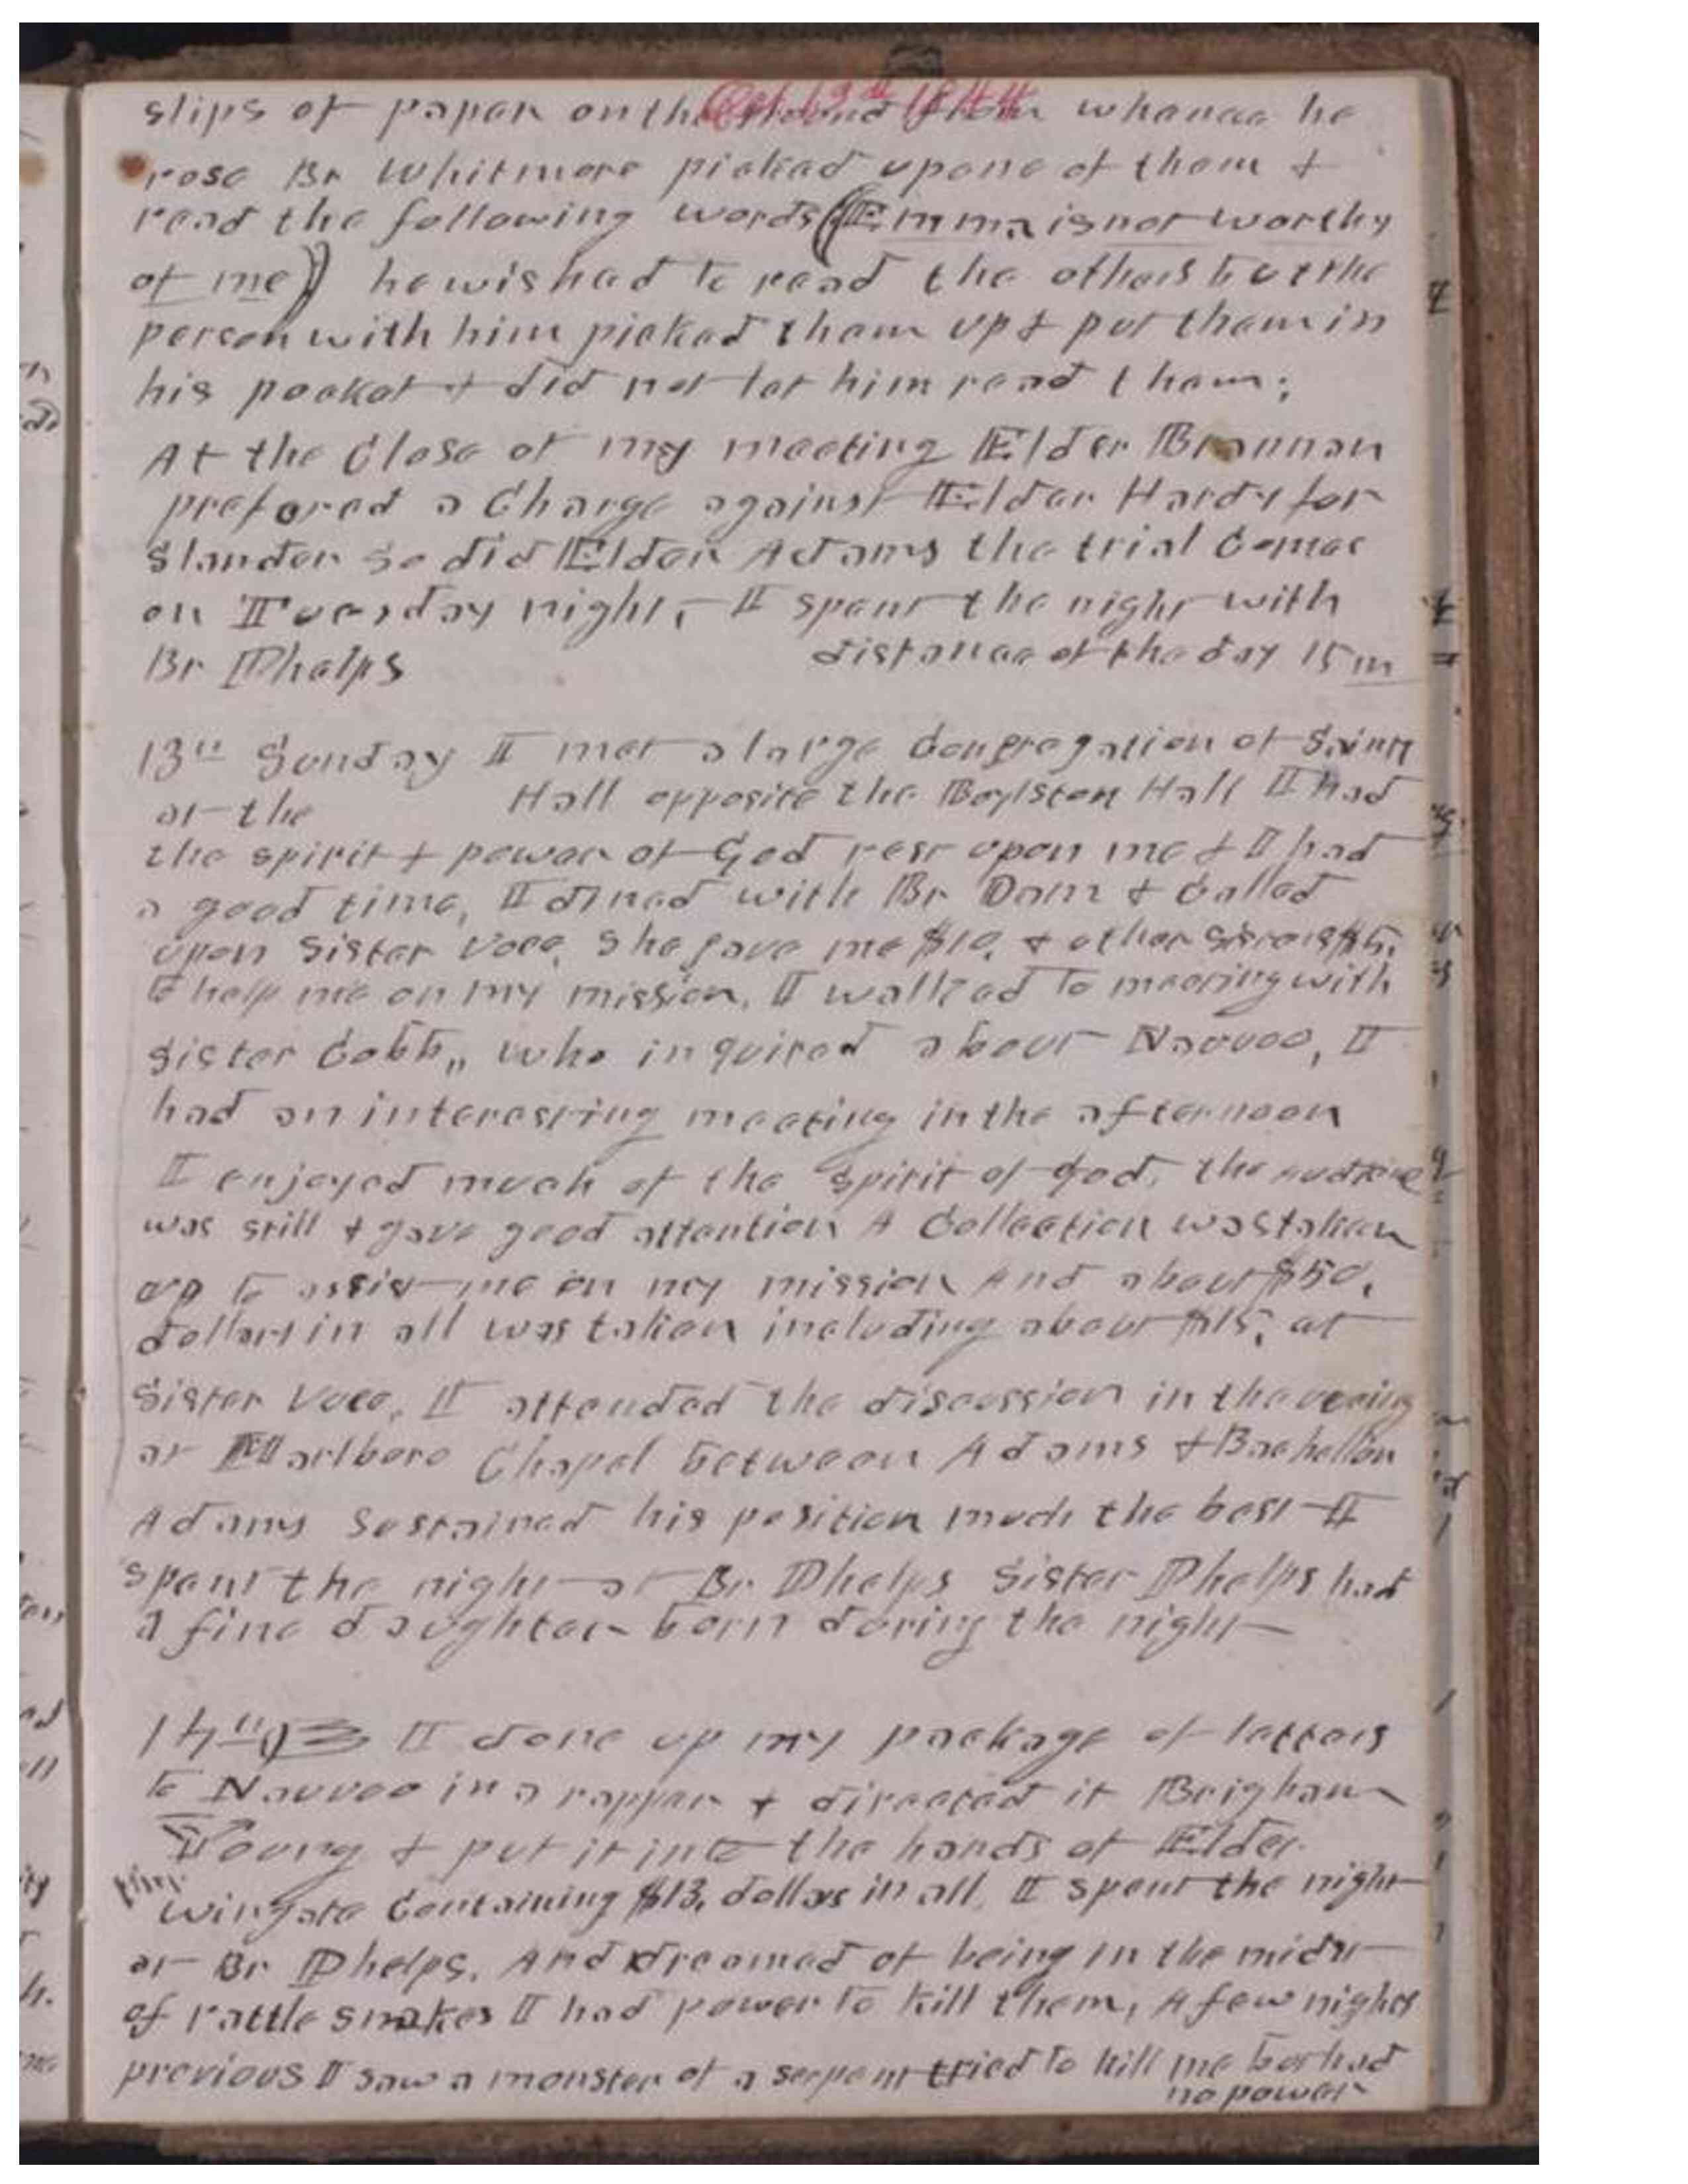 Oct 13th 1844
slips of paper on the ground from whence he
rose Br Whitmore picked up one of them &
read the following words (Emma is not worthy
of me) he wished to read the others but the
person with him picked them up & put them in
his pocket & did not let him read them;
At the Close of my meeting Elder Brannan
prefered a Charge against Elder Hardy for
Slander so did Elder Adams the trial Comes
on Tuesday night, I spent the night with
Br Phelps distance of the day 15 m
13th Sunday I met a large Congregation of Saints
at the Hall opposite the Boylston Hall I had
the spirit & power of God rest upon me & I had
a good time, I dined with Br Dam & Called
upon Sister Voce, She gave me $10, & other Sisters $5,
to help me on my mission, I walked to meeting with
Sister Cobb,, who inquired about Nauvoo, I
had an interesting meeting in the afternoon
I enjoyed much of the spirit of God, the audience
was still & gave good attention A Collection was taken
up to assist me on my mission And about $50,
dollars in all was taken including about $15, at
Sister Voce, I attended the discussion in the evening
at Marlboro Chapel between Adams & Bachellor
Adams Sustained his position much the best I
spent the night at Br Phelps Sister Phelps had
a fine daughter born during the night
14th I done up my package of letters
to Nauvoo in a rapper & directed it Brigham
Young & put it into the hands of Elder
Wingate Containing $13, dollars in all, I spent the night
at Br Phelps, And dreamed of being in the midst
of rattle snakes I had power to kill them, A few nights
previous I saw a monster of a serpent tried to kill me but had
no power